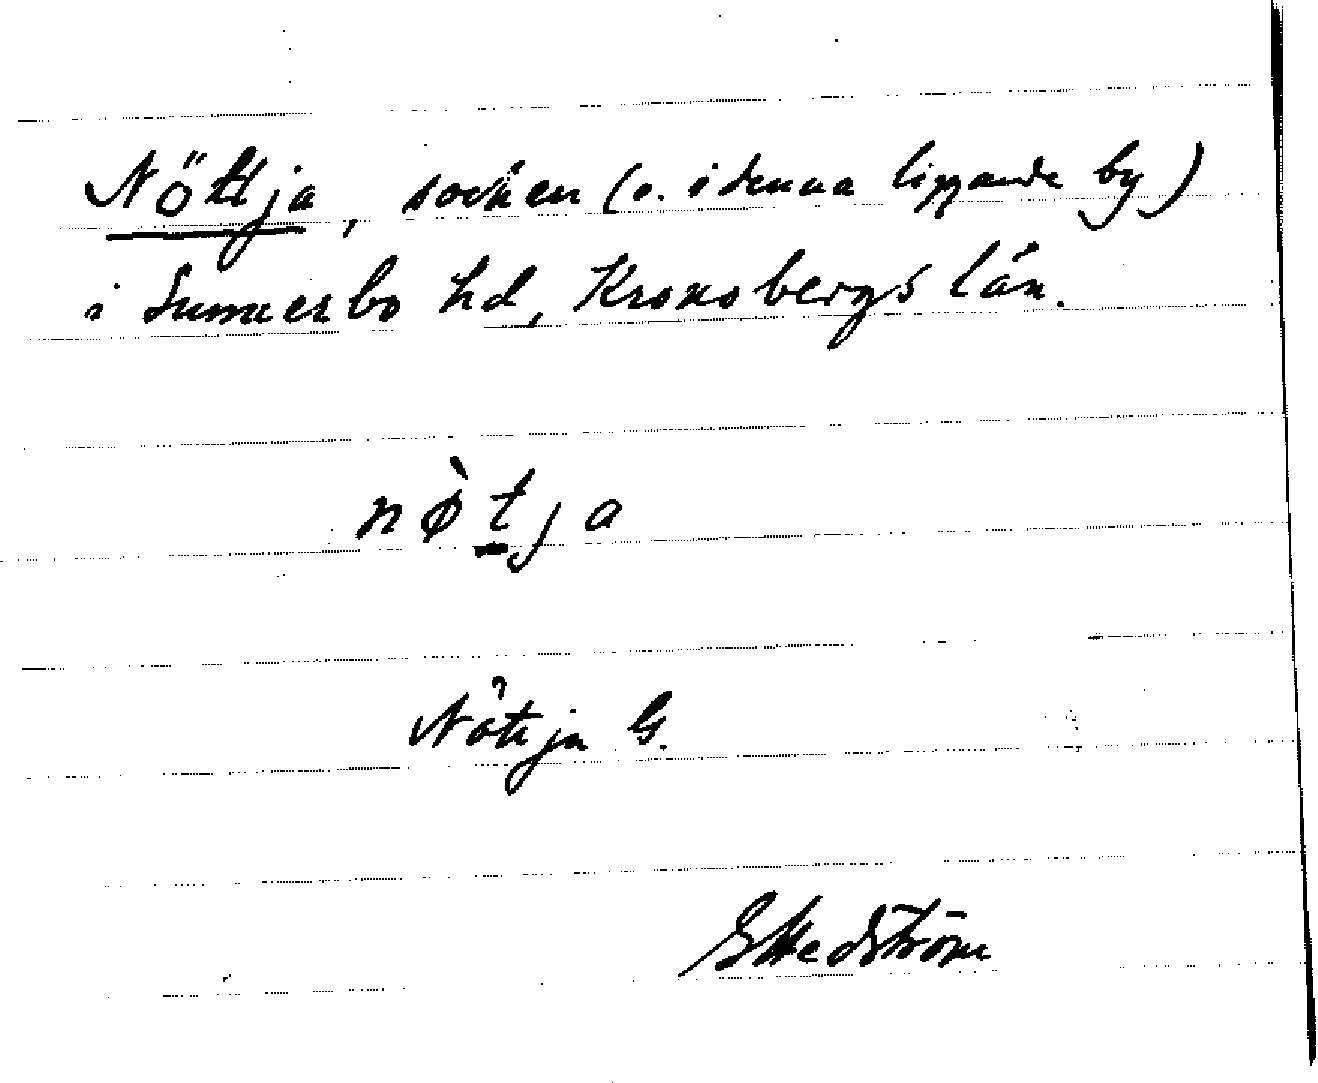 Nöttja, socken (o. i denna liggande by)
i Sunnerbo hd, Kronobergs län.
nø̀t̲ja
Nöttja G.
GHedström